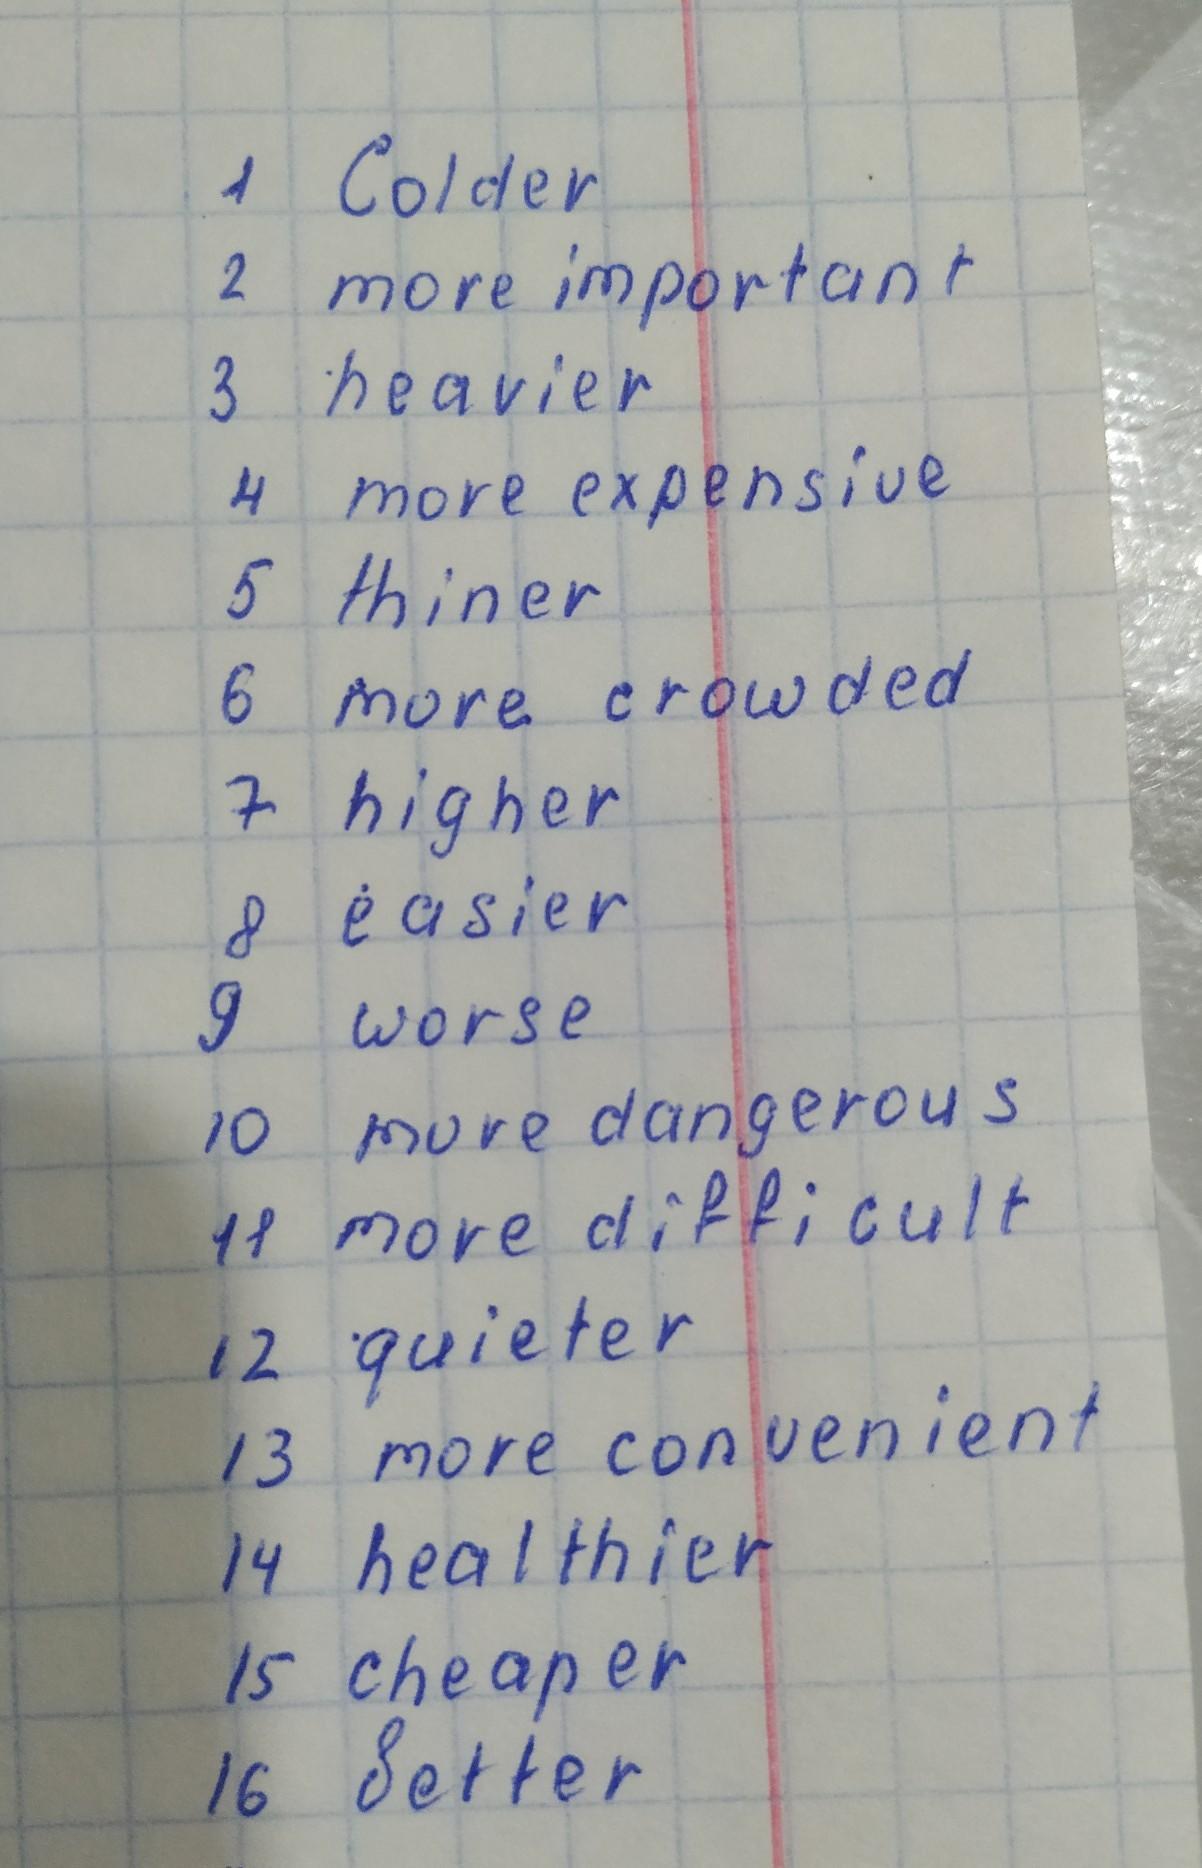 1 Colder
2 more important
3 heavier
4 more expensive
5 thiner
6 more crowded
7 higher
8 easier
9 worse
10 more dangerous
11 more difficult
12 quieter
13 more convenient
14 healthier
15 cheaper
16 better